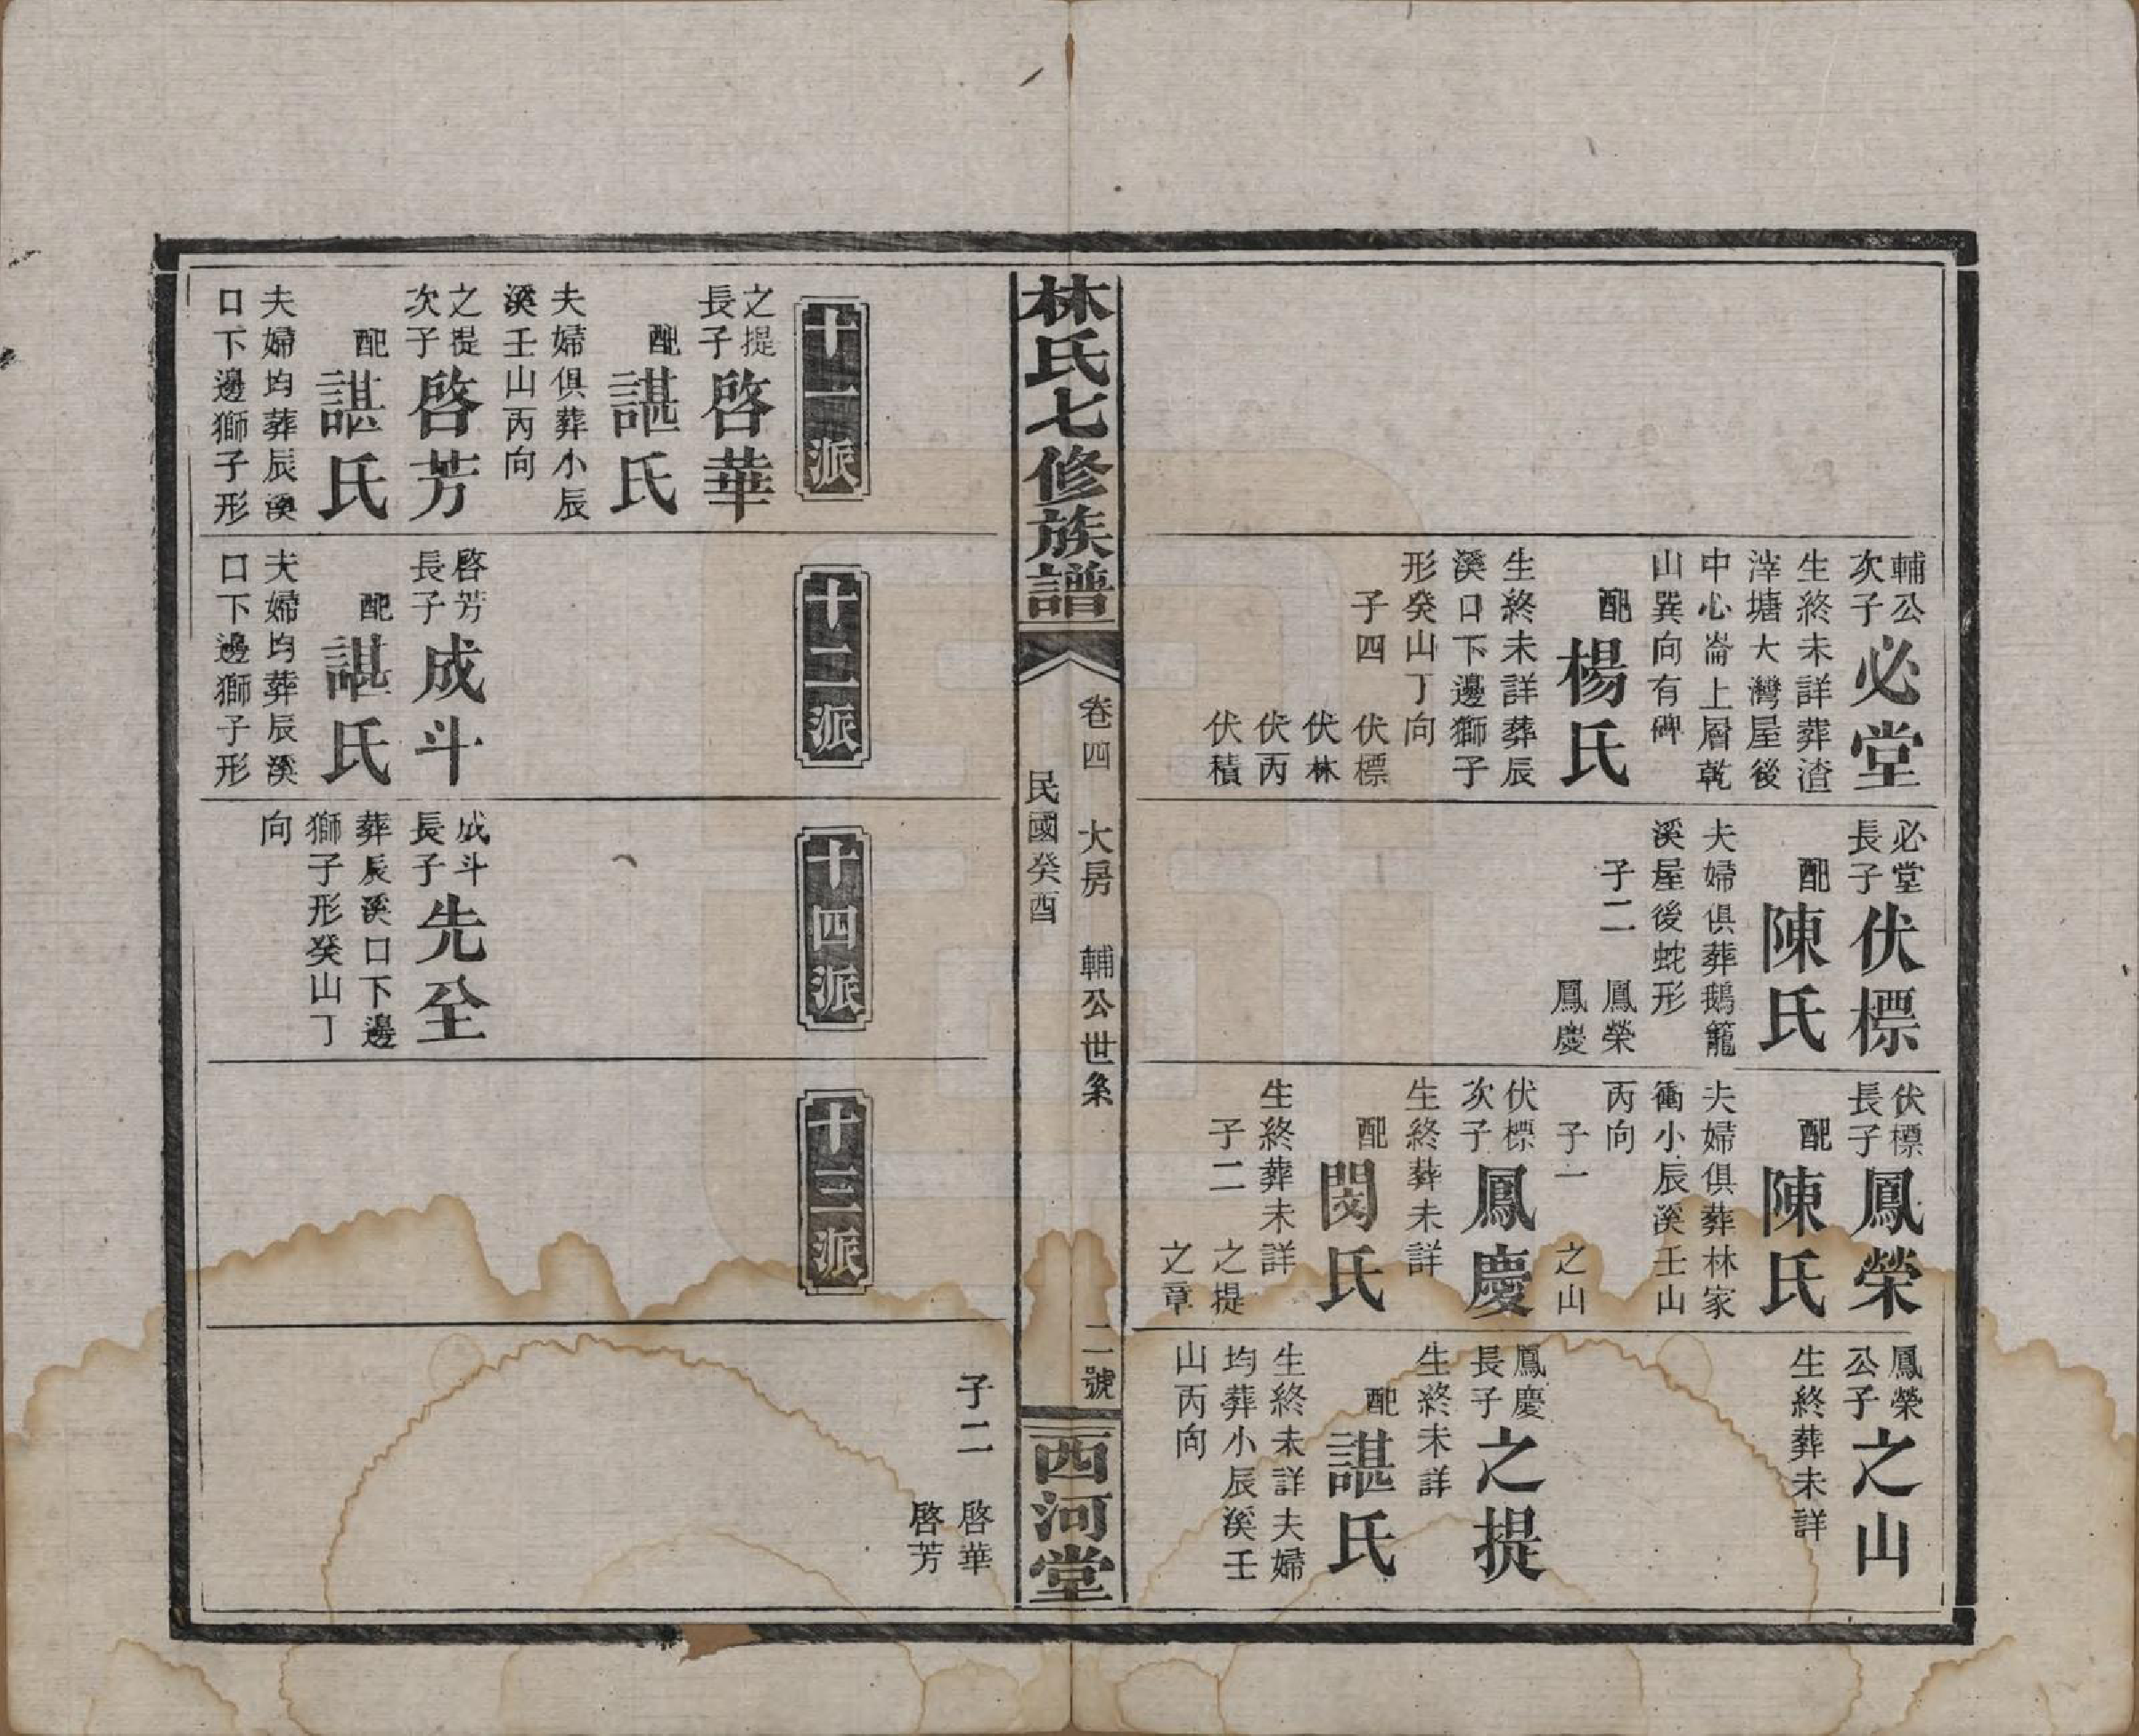 輔公
次子
必堂
生終未詳葬渣
滓塘大灣屋後
中心崙上層乾
山巽向有碑
配
楊氏
生終未詳葬辰
溪口下邊獅子
形癸山丁向
子四
伏標
伏林
伏丙
伏積
必堂
長子
伏標
配
陳氏
夫婦俱葬鵝籠
溪屋後蛇形
子二
鳳榮
鳳慶
伏標
長子
鳳榮
配
陳氏
夫婦俱葬林家
衝小辰溪壬山
丙向
子一
之山
伏標
次子
鳳慶
生終葬未詳
配
閔氏
生終葬未詳
子二
之提
之章
鳳榮
公子
之山
生終葬未詳
鳳慶
長子
之提
生終未詳
配
諶氏
生終未詳夫婦
均葬小辰溪壬
山丙向
林氏七修族譜
卷四 大房 輔公世系
二號
民國癸酉
西河堂
十一派
之提
長子
啓華
配
諶氏
夫婦俱葬小辰
溪壬山丙向
之提
次子
啓芳
配
諶氏
夫婦均葬辰溪
口下邊獅子形
十二派
啓芳
長子
成斗
配
諶氏
夫婦均葬辰溪
口下邊獅子形
十四派
成斗
長子
先至
葬辰溪口下邊
獅子形癸山丁
向
十三派
子二
啓華
啓芳